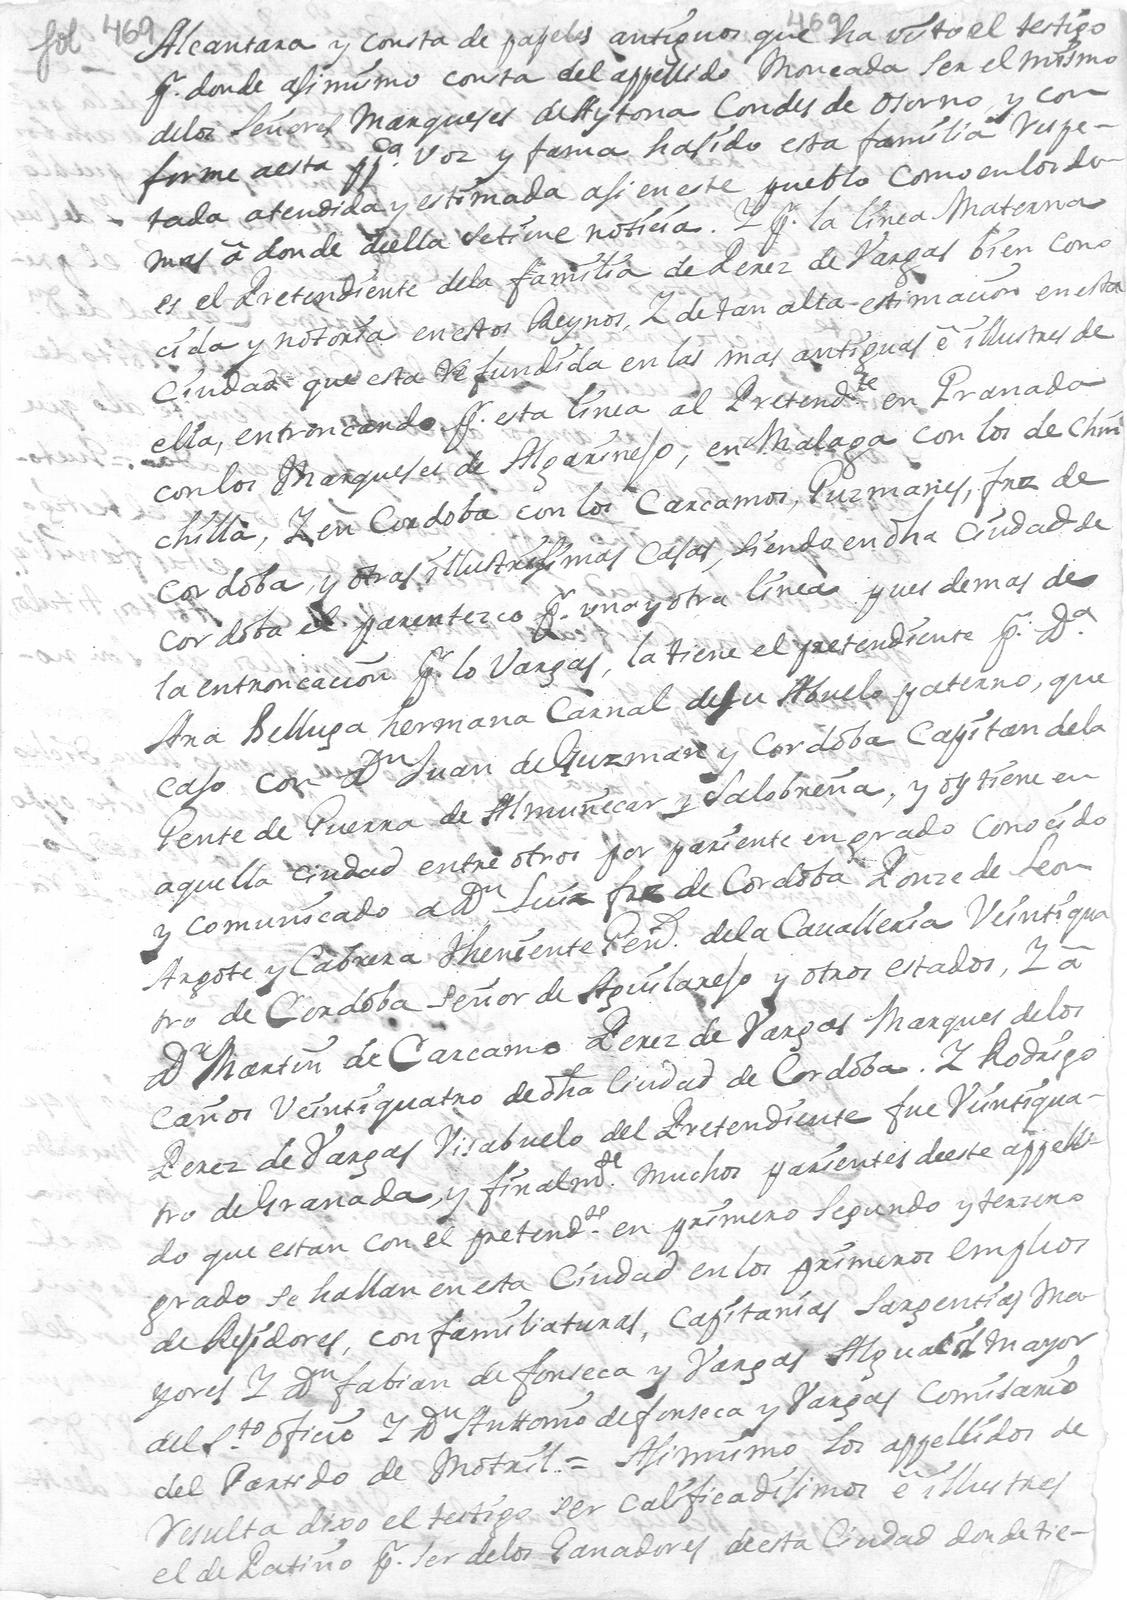 fol 469 469
Alcantara y consta de papeles antiguos que ha visto el testigo
pr. donde asimismo consta del appellido Moncada ser el mismo
delos Señores Marqueses de Aytona Condes de Osorno, y con
forme a esta ppca. voz y fama hasido esta familia respe-
tada atendida y estimada asi en este pueblo como en los de
mas â donde de ella se tiene noticia. Y pr. la linea Materna
es el Pretendiente dela familia de Perez de Vargas bien cono
cida y notoria en estos Reynos, Y de tan alta estimacion en esta
Ciudad que esta refundida en las mas antiguas ê illustres de
ella, entroncando pr. esta linea al Pretendte. en Granada
con los Marqueses de Algarinejo, en Malaga con los de Chin
chilla, Y en Cordoba con los Carcamos, Guzmanes, frz de
Cordoba, y otras illustrissimas Casas, siendo en dha Ciudad de
Cordoba el parentezco pr. una y otra linea pues demas de
la entroncacion pr. lo Vargas, la tiene el pretendiente pr. Da.
Ana Belluga hermana Carnal de su Abuelo paterno, que
caso con Dn Juan de Guzman y Cordoba Capitan dela
Gente de Guerra de Almuñecar y Salobreña, y oy tiene en
aquella ciudad entre otros por pariente en grado conocido
y comunicado a Dn Luis frz de Cordoba Ponze de Leon
Argote y Cabrera Theniente Genl. dela Cavalleria Veintiqua
tro de Cordoba Señor de Aguilarejo y otros estados, Y a
Dn Martin de Carcamo Perez de Vargas Marques delos
Caños Veintiquatro de dha Ciudad de Cordoba. Y Rodrigo
Perez de Vargas Visabuelo del Pretendiente fue Veintiqua-
tro de Granada, y finalmte. muchos parientes de este appelli
do que estan con el pretendte. en primero segundo y terzero
grado se hallan en esta Ciudad en los primeros empleos
de Regidores, con familiaturas, Capitanias Sargentias Ma
yores Y Dn fabian de fonseca y Vargas Alguacil mayor
del Sto. oficio Y Dn Anttonio de fonseca y Vargas Comisario
del Partido de Motril = Asimismo los appellidos de
resulta dixo el testigo ser calificadisimos ê illustres
el de Patiño pr. ser delos Ganadores de esta Ciudad donde tie-